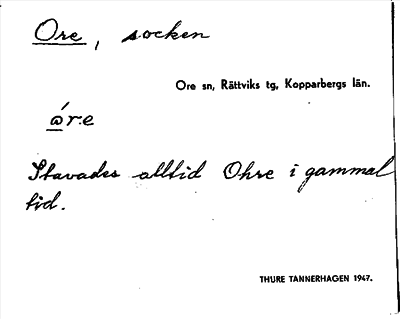 Ore, socken
Ore sn, Rättviks tg, Kopparbergs län.
Stavades alltid Ohre i gammal
tid.
THURE TANNERHAGEN 1947.